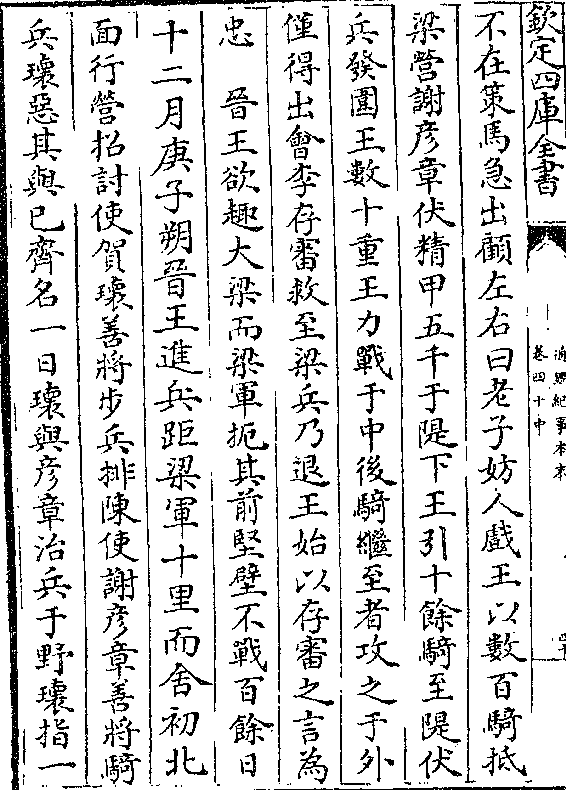 欽定四庫全書
通鑑紀事本末
卷四十中
不在策馬急出顧左右曰老子妨人戲王以數百騎抵
梁營謝彦章伏精甲五千于隄下王引十餘騎至隄伏
兵發圍王數十重王力戰于中後騎繼至者攻之于外
僅得出會李存審救至梁兵乃退王始以存審之言為
忠　晉王欲趣大梁而梁軍扼其前堅壁不戰百餘日
十二月庚子朔晉王進兵距梁軍十里而舍初北
面行營招討使賀瓌善將步兵排陳使謝彦章善將騎
兵瓌惡其與已齊名一日瓌與彦章治兵于野瓌指一